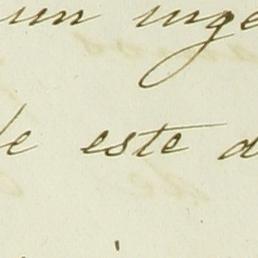 un inge
de este d